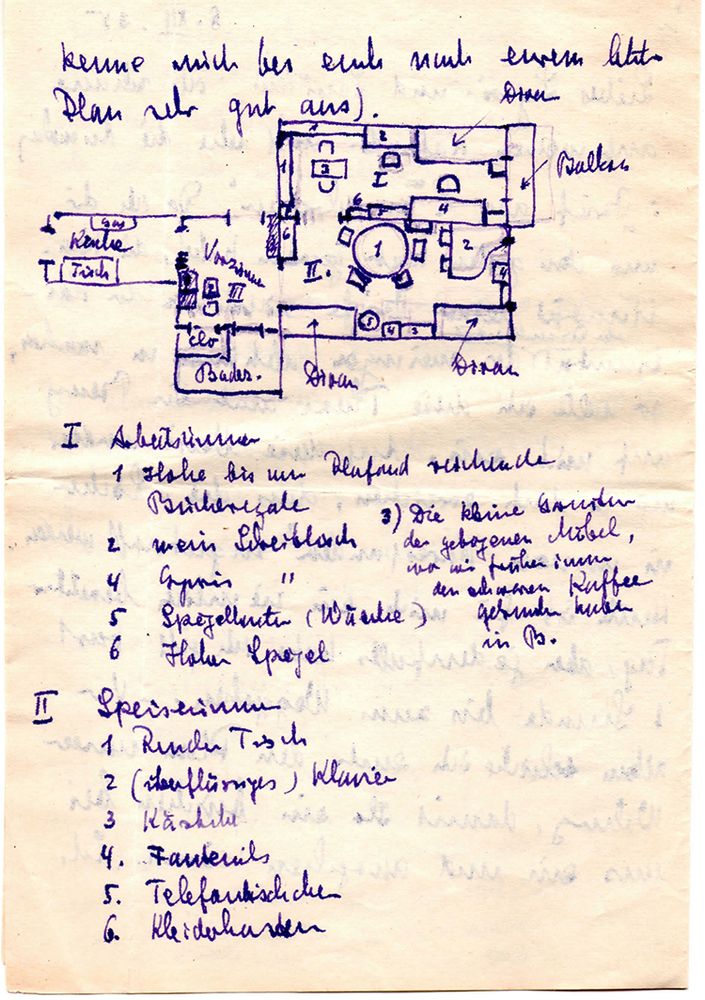 kenne mich bei euch nach eurem letzten
Plan sehr gut aus).
Divan
Balkon
1
2
3
I
1
6
5
4
6
Gas
Küche
Tisch
Vorzimmer
III
II.
1
2
4
Clo
5
4
3
Badez.
Divan
Divan
I Arbeitszimmer
1 Hohe bis zum Plafond reichende
Bücherregale
2 mein Schreibtisch
4 "
5 Spiegelkasten (Wäsche)
6 Hoher Spegel
3) Die kleine
der gebogenen Möbel,
wo wir früher immer
den schwarzen Kaffee
getrunken haben
in B.
II Speisezimmer
1 Runder Tisch
2 (überflüssiges) Klavier
3
4. Fauteuils
5. Telefontischchen
6. Kleiderkasten